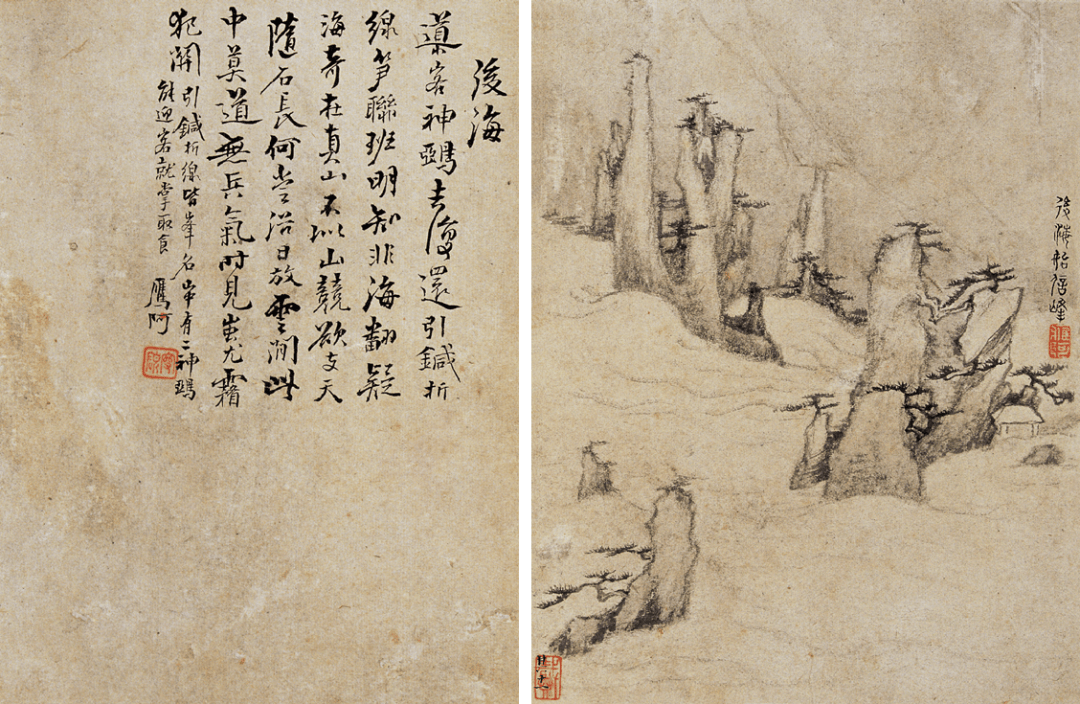 後海
導客神鴉去復還引鍼折
線筍聯班明知非海翻疑
海奇在真山不似山競欲支天
隨石長何當浴日放雲閒此
中莫道無兵氣時見蚩尤霜
犯關
引鍼折線皆峯名有二神鴉
能迎客就掌取食
鷹阿
後海始信峰